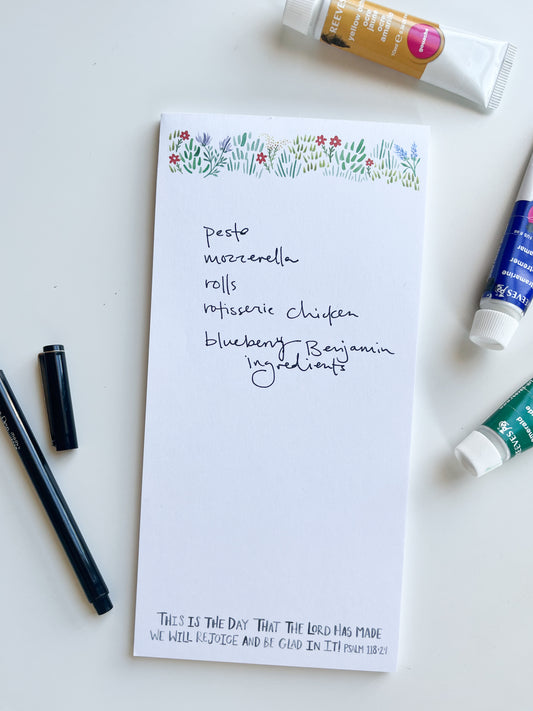 REEVES
yellow oc
ocre
jaune
ocre
amarillo
pesto
mozzerella
rolls
rotisserie chicken
blueberry Benjamin
ingredients
REEVES
REEVES
THIS IS THE DAY THAT THE LORD HAS MADE
WE WILL REJOICE AND BE GLAD IN IT! PSALM 118:24